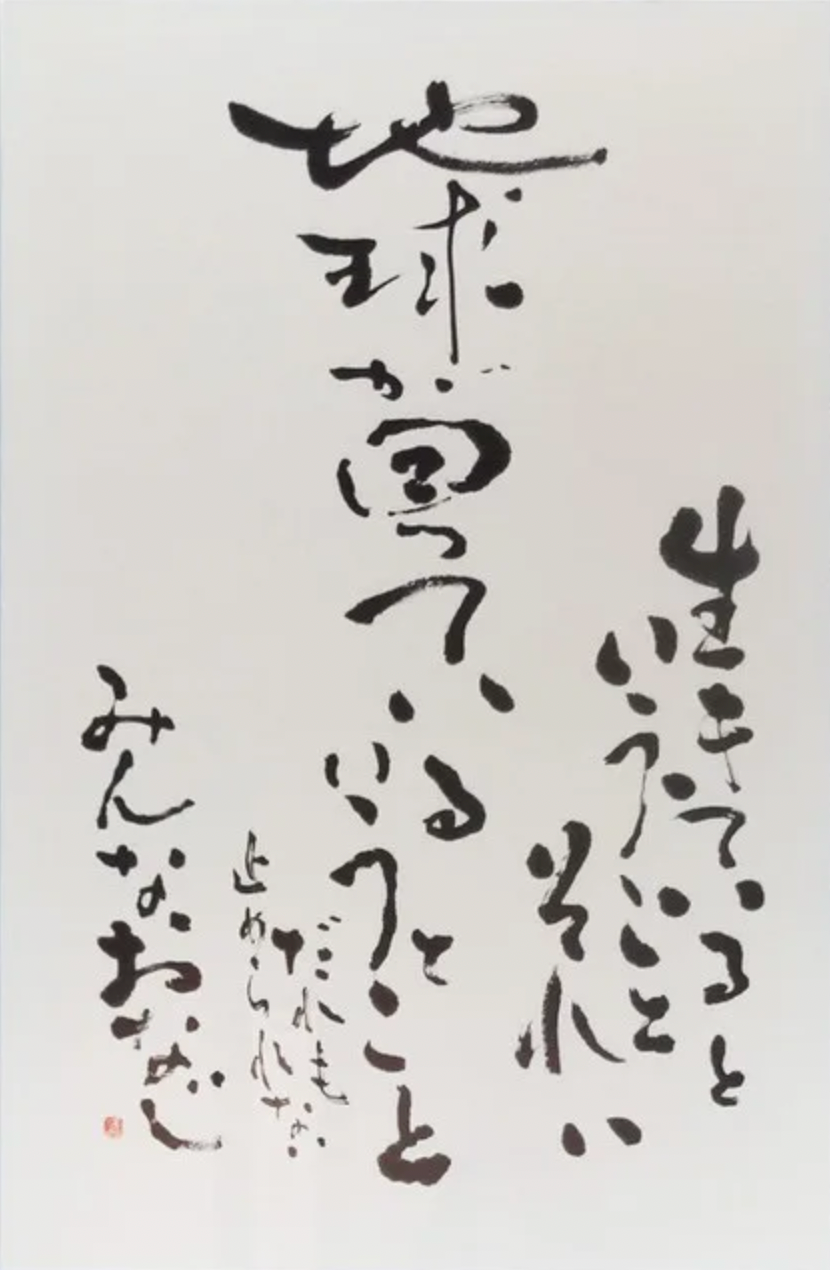 生きていると
いうこと
それは
地球が回っていると
いうこと
だれも
止められない
みんなおなじ